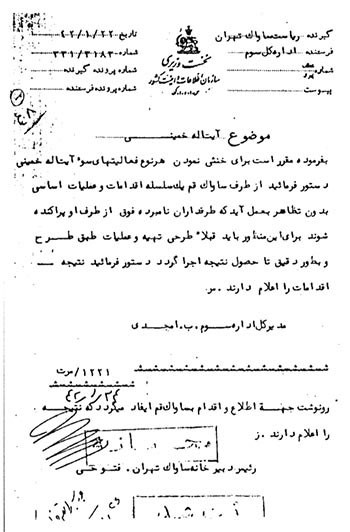 گیرنده: ریاست ساواک تهران
فرستنده: اداره کل سوم
شماره
پیوست
نخست وزیری
سازمان اطلاعات و امنیت کشور
س.ا.و.ا.ک
تاریخ ۴۲/۱/۲۲
شماره ۳۳۱/۳۱۸۳
شماره پرونده گیرنده
شماره پرونده فرستنده
موضوع آیت اله خمینی
بفرموده مقرر است برای خنثی نمودن هرنوع فعالیتهای سوء آیت اله خمینی
دستور فرمائید از طرف ساواک قم یک سلسله اقدامات و عملیات اساسی
بدون تظاهر بعمل آید که طرفداران نامبرده فوق از طرف او پراکنده
شوند برای این منظور باید قبلاً طرحی تهیه و عملیات طبق طرح
و بطور دقیق تا حصول نتیجه اجرا گردد دستور فرمائید نتیجه
اقدامات را اعلام دارند.
مدیرکل اداره سوم.ب.امجدی
۱۲۲۱/مرت
۴۲/۱/۲۴
رونوشت جهة اطلاع و اقدام بساواک قم ایفاد میگردد که نتیجه
را اعلام دارند. ز
رئیس دبیرخانه ساواک تهران. فتوحی